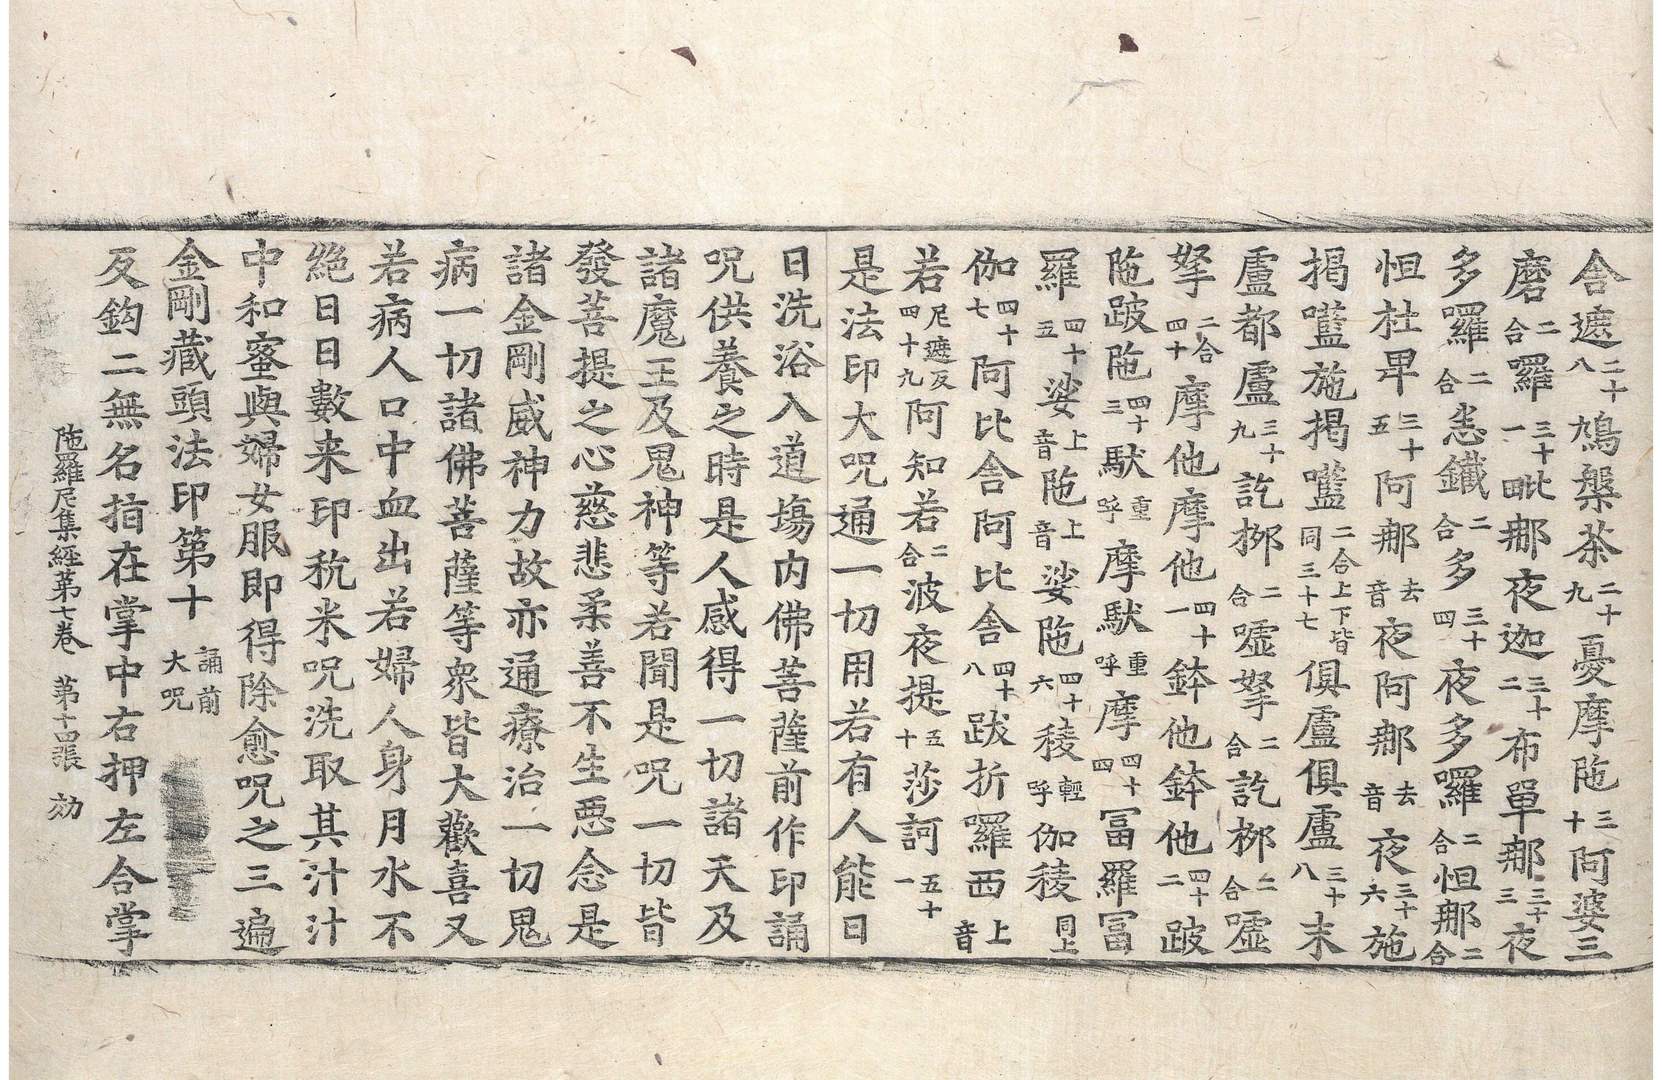 舎遮二十八鳩槃茶二十九憂摩陁三十阿婆三
磨二合囉三十一毗那夜迦三十二布單那三十三夜
多囉二合恚鐵二合多三十四夜多囉二合怛那二合
怛杜卑三十五阿那去音夜阿那去音夜三十六施
揭㘕施揭㘕二合上下皆同三十七俱盧俱盧三十八末
盧都盧三十九訖㮈二合嘘拏二合訖㮈二合嘘
拏二合四十摩他摩他四十一鉢他鉢他四十二跛
陁跛陁四十三馱重呼摩馱重呼摩四十四冨羅冨
羅四十五娑上音陁上音娑陁四十六稜輕呼伽稜同上
伽四十七阿比舎阿比舎四十八跋折囉西上音
若尼遮反四十九阿知若二合波夜提五十莎訶五十一
是法印大呪通一切用若有人能日
日洗浴入道場内佛菩薩前作印誦
呪供養之時是人感得一切諸天及
諸魔王及鬼神等若聞是呪一切皆
發菩提之心慈悲柔善不生惡念是
諸金剛威神力故亦通療治一切鬼
病一切諸佛菩薩等衆皆大歡喜又
若病人口中血出若婦人身月水不
絶日日數来印秔米呪洗取其汁汁
中和蜜與婦女服即得除愈呪之三遍
金剛藏頭法印第十誦前大呪
反鈎二無名指在掌中右押左合掌
陁羅尼集經第七卷 第十四張 効